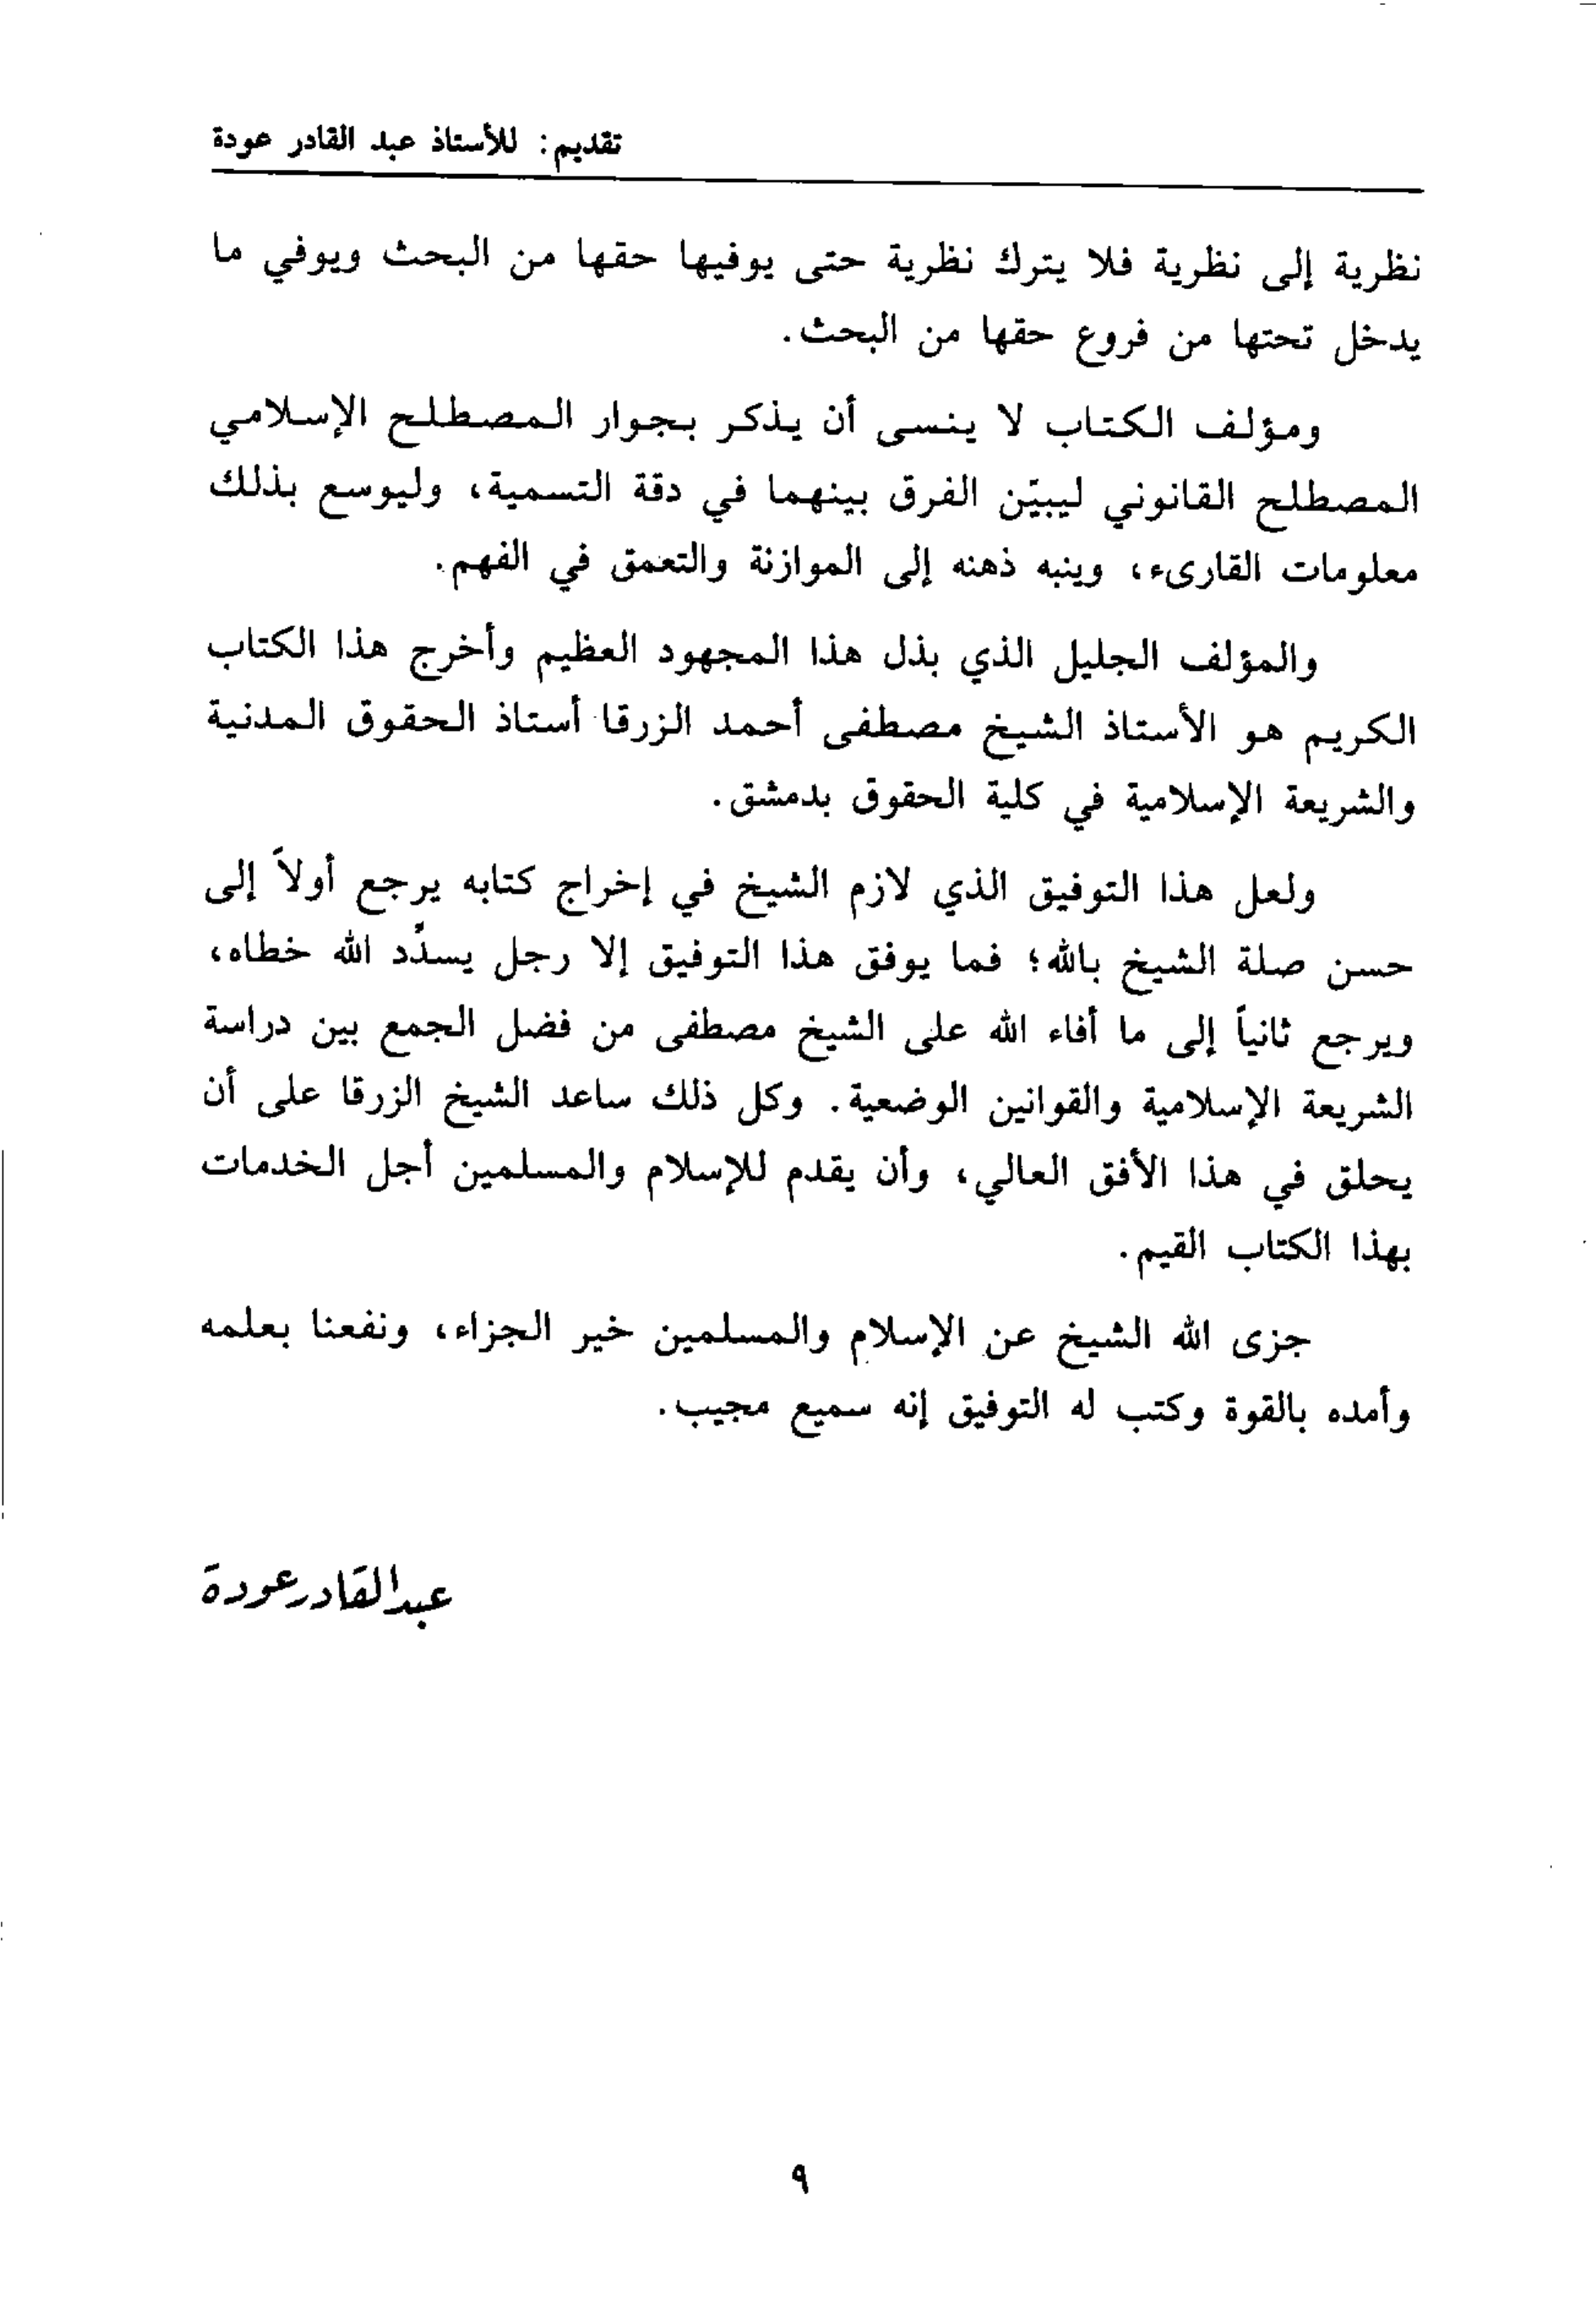 تقديم: للأستاذ عبد القادر عودة
نظرية إلى نظرية فلا يترك نظرية حتى يوفيها حقها من البحث ويوفي ما
يدخل تحتها من فروع حقها من البحث.
ومؤلف الكتاب لا ينسى أن يذكر بجوار المصطلح الإسلامي
المصطلح القانوني ليبيّن الفرق بينهما في دقة التسمية، وليوسع بذلك
معلومات القارىء، وينبه ذهنه إلى الموازنة والتعمق في الفهم.
والمؤلف الجليل الذي بذل هذا المجهود العظيم وأخرج هذا الكتاب
الكريم هو الأستاذ الشيخ مصطفى أحمد الزرقا أستاذ الحقوق المدنية
والشريعة الإسلامية في كلية الحقوق بدمشق.
ولعل هذا التوفيق الذي لازم الشيخ في إخراج كتابه يرجع أولاً إلى
حسن صلة الشيخ بالله؛ فما يوفق هذا التوفيق إلا رجل يسدِّد الله خطاه،
ويرجع ثانياً إلى ما أفاء الله على الشيخ مصطفى من فضل الجمع بين دراسة
الشريعة الإسلامية والقوانين الوضعية. وكل ذلك ساعد الشيخ الزرقا على أن
يحلق في هذا الأفق العالي، وأن يقدم للإسلام والمسلمين أجل الخدمات
بهذا الكتاب القيم.
جزى الله الشيخ عن الإسلام والمسلمين خير الجزاء، ونفعنا بعلمه
وأمده بالقوة وكتب له التوفيق إنه سميع مجيب.
عبد القادر عودة
٩